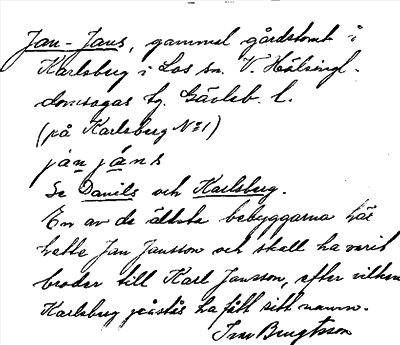 Jan-Jans, gammal gårdstomt i
Karlsberg i Los sn. V. Hälsingl.
domsagas tg. Gävleb. l.
(på Karlsberg No 1)
ján jáns
Se Danils och Karlsberg.
En av de äldsta bebyggarna här
hette Jan Jansson och skall ha varit
broder till Karl Jansson, efter vilken
Karlsberg påstås ha fått sitt namn.
Bengtsson